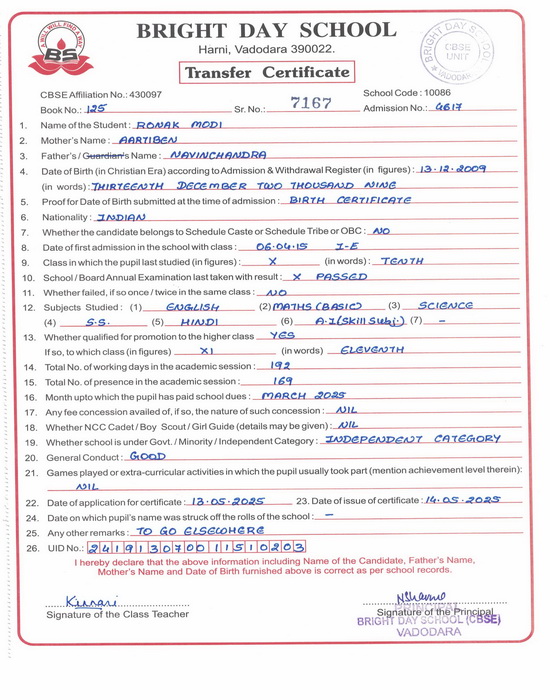 A WILL WILL FIND A WAY
BS
BRIGHT DAY SCHOOL
Harni, Vadodara 390022.
BRIGHT DAY SCHOOL
CBSE
UNIT
VADODARA
Transfer Certificate
CBSE Affiliation No.: 430097
School Code : 10086
Book No.: 125 Sr. No.: 7167 Admission No.: 4617
1. Name of the Student : RONAK MODI
2. Mother's Name : AARTIBEN
3. Father's / Guardian's Name : NAVINCHANDRA
4. Date of Birth (in Christian Era) according to Admission & Withdrawal Register (in figures) : 13.12.2009
(in words) : THIRTEENTH DECEMBER TWO THOUSAND NINE
5. Proof for Date of Birth submitted at the time of admission : BIRTH CERTIFICATE
6. Nationality : INDIAN
7. Whether the candidate belongs to Schedule Caste or Schedule Tribe or OBC : NO
8. Date of first admission in the school with class : 06.04.15 I-E
9. Class in which the pupil last studied (in figures) : X (in words) : TENTH
10. School / Board Annual Examination last taken with result : X PASSED
11. Whether failed, if so once / twice in the same class : NO
12. Subjects Studied : (1) ENGLISH (2) MATHS (BASIC) (3) SCIENCE
(4) S.S. (5) HINDI (6) A.I (Skill Subj.) (7) –
13. Whether qualified for promotion to the higher class YES
If so, to which class (in figures) XI (in words) ELEVENTH
14. Total No. of working days in the academic session : 192
15. Total No. of presence in the academic session : 169
16. Month upto which the pupil has paid school dues : MARCH 2025
17. Any fee concession availed of, if so, the nature of such concession : NIL
18. Whether NCC Cadet / Boy Scout / Girl Guide (details may be given) : NIL
19. Whether school is under Govt. / Minority / Independent Category : INDEPENDENT CATEGORY
20. General Conduct : GOOD
21. Games played or extra-curricular activities in which the pupil usually took part (mention achievement level therein) :
NIL
22. Date of application for certificate : 13.05.2025 23. Date of issue of certificate : 14.05.2025
24. Date on which pupil's name was struck off the rolls of the school : –
25. Any other remarks : TO GO ELSEWHERE
26. UID No.: 241913070011510203
I hereby declare that the above information including Name of the Candidate, Father's Name,
Mother's Name and Date of Birth furnished above is correct as per school records.
Kumari
Signature of the Class Teacher
Signature of the Principal
PRINCIPAL
BRIGHT DAY SCHOOL (CBSE)
VADODARA